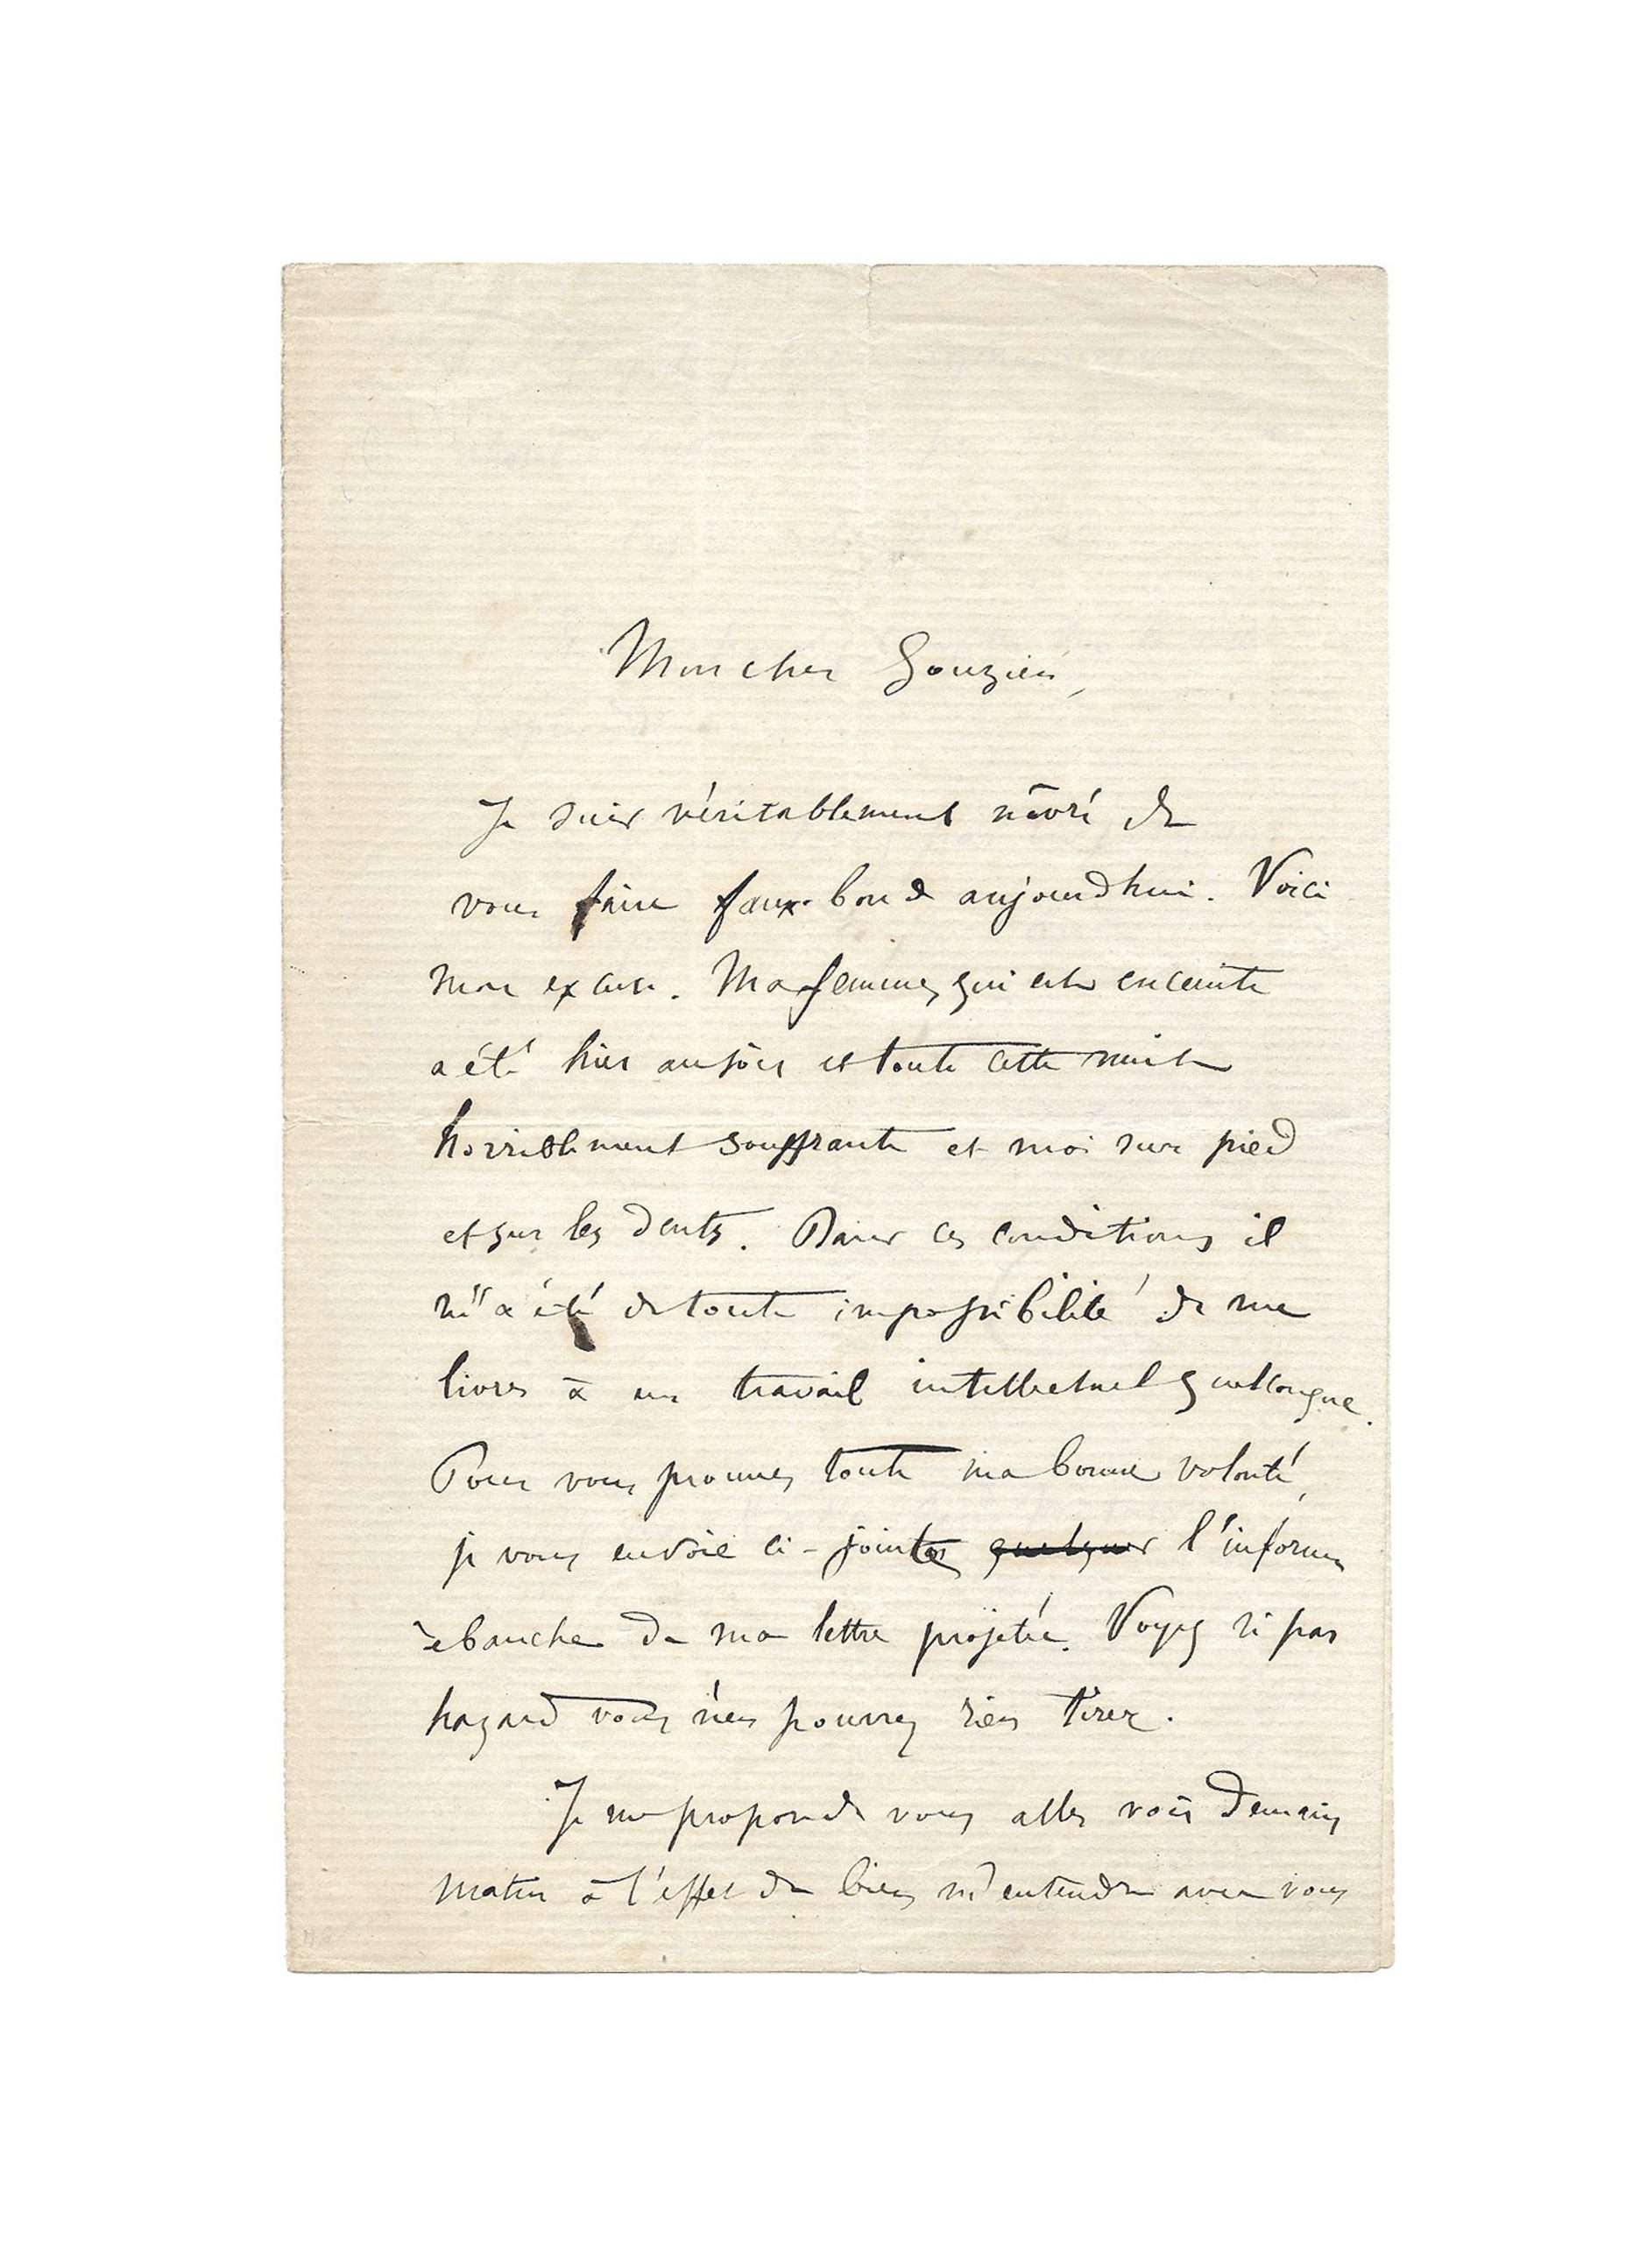 Mon cher Gouzien,
Je suis véritablement nâvré de
vous faire faux-bond aujourdhui. Voici
mon excuse. Ma femme, qui est enceinte
a été hier au soir et toute cette nuit
horriblement souffrante et moi sur pied
et sur les dents. Dans ces conditions il
m'a été de toute impossibilité de me
livrer à un travail intellectuel quelconque.
Pour vous prouver toute ma bonne volonté,
je vous envoie ci-jointes quelques l'informe
ébauche de ma lettre projetée. Voyez si par
hazard vous n'en pourrez rien tirer.
Je me propose de vous aller voir demain
matin à l'effet de bien m'entendre avec vous